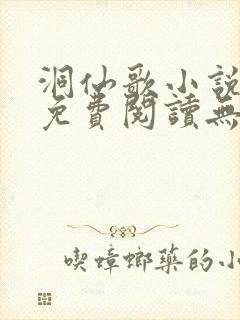 洞仙歌小説
免費閱讀無
喫蟑螂藥的小